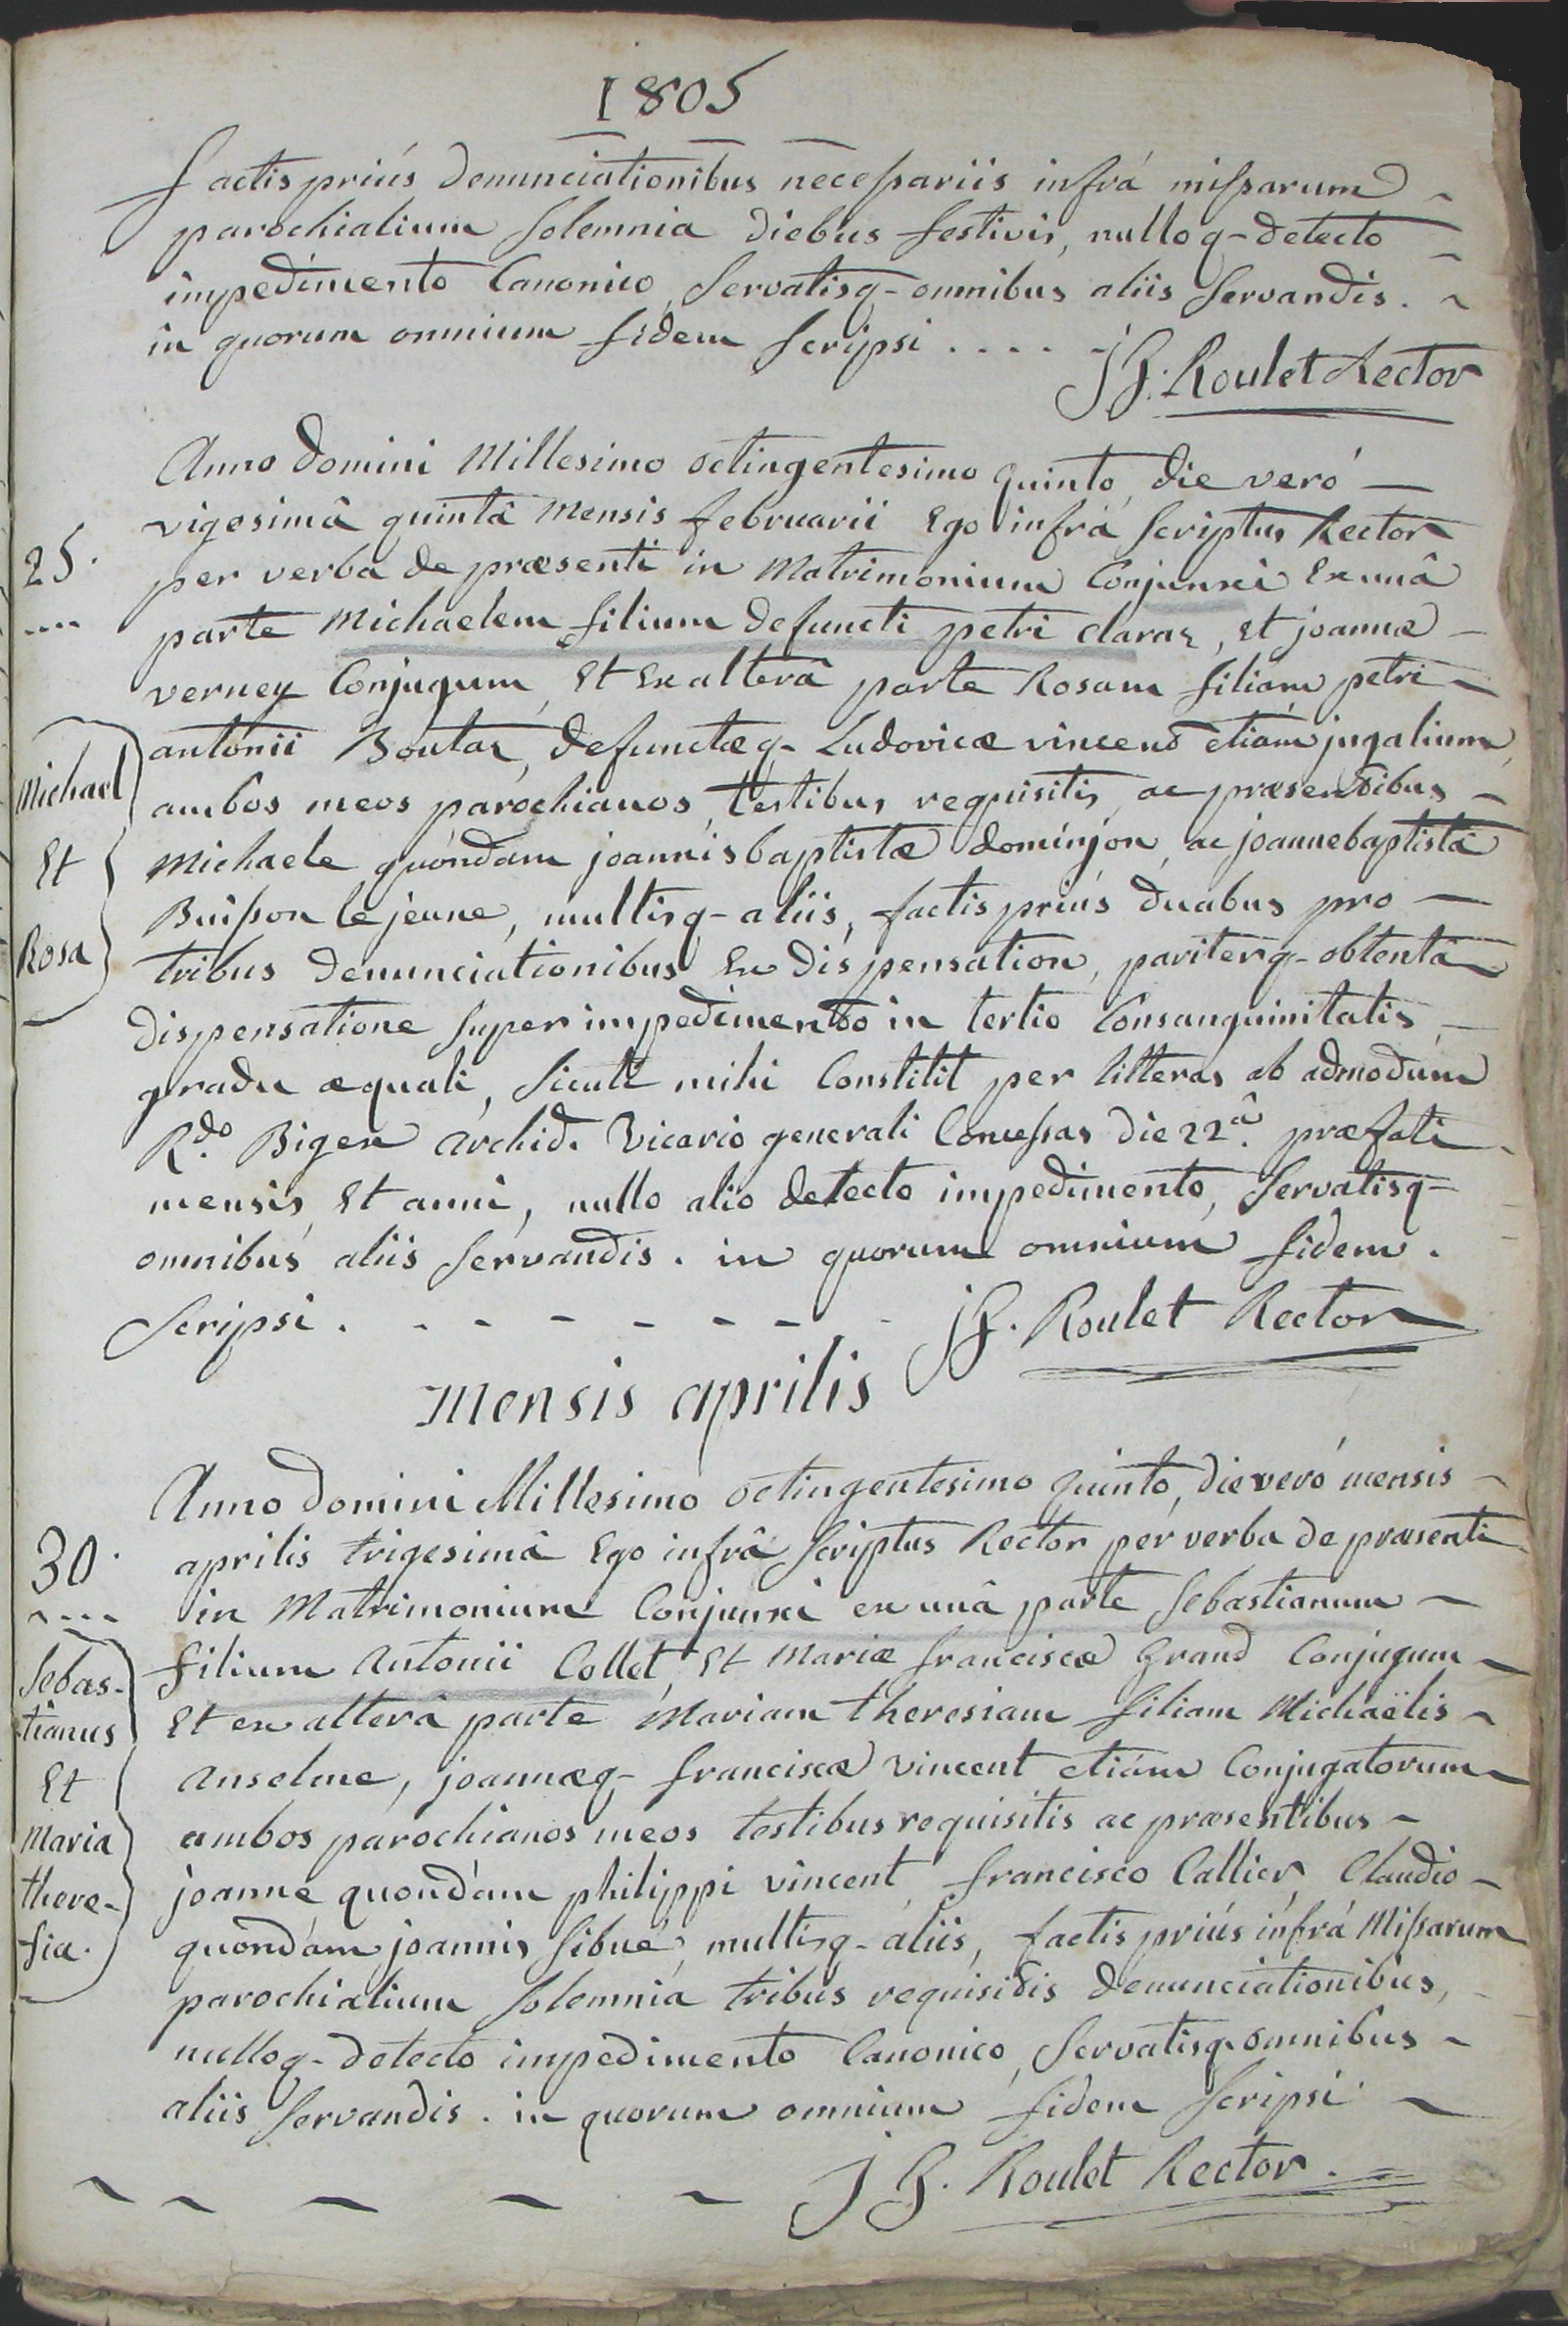 1805
factis priùs denunciationibus necessariis infrà missarum
parochialium solemnia diebus festivis, nulloq- detecto
impedimento Canonico, servatisq- omnibus aliis servandis.
in quorum omnium fidem scripsi . . . .
J G. Roulet Rector
Anno domini Millesimo octingentesimo quinto, die verò
vigesimâ quintâ mensis februarii Ego infrà scriptus Rector
25.
per verba de præsenti in Matrimonium Conjunxi Ex unâ
parte Michaelem filium defuncti petri claraz, et joannæ
verney Conjugum, Et Ex alterâ parte Rosam filiam petri
antonii Boutaz, defunctæq- Ludovicæ vincend etiam jugalium,
Michael
Et
Rosa
ambos meos parochianos, testibus requisitis, ac præsentibus
Michaele quondam joannis baptistæ dominjon, ac joanne baptistâ
Buisson le jeune, multisq- aliis, factis priùs duabus pro
tribus denunciationibus Ex dispensation, pariterq- obtentâ
dispensatione super impedimento in tertio Consanguinitatis
gradu æquali, sicuti mihi Constitit per litteras ab admodùm
R.do Bigex archid. Vicario generali Concessas die 22.â præfati
mensis Et anni, nullo alio detecto impedimento, servatisq-
omnibus aliis servandis. in quorum omnium fidem.
Scripsi . - - - - - - -
jG. Roulet Rector
Mensis aprilis
Anno domini Millesimo octingentesimo quinto, die verò mensis
30.
aprilis trigesimâ Ego infrà scriptus Rector per verba de præsenti
in Matrimonium Conjunxi ex unâ parte Sebastianum
filium antonii Collet, Et Mariæ franciscæ Grand Conjugum
Et ex alterâ parte Mariam theresiam filiam Michaëlis
Sebas-
tianus
Et
Maria
there-
sia.
Anselme, joannæq- franciscæ vincent etiàm Conjugatorum
ambos parochianos meos testibus requisitis ac præsentibus
joanne quondàm philippi vincent, francisco Callier, Claudio
quondàm joannis sibué, multisq- aliis, factis priùs infrà Missarum
parochialium solemnia tribus requisitis denunciationibus,
nulloq- detecto impedimento Canonico, servatisq- omnibus
aliis servandis. in quorum omnium fidem scripsi
J G. Roulet Rector.